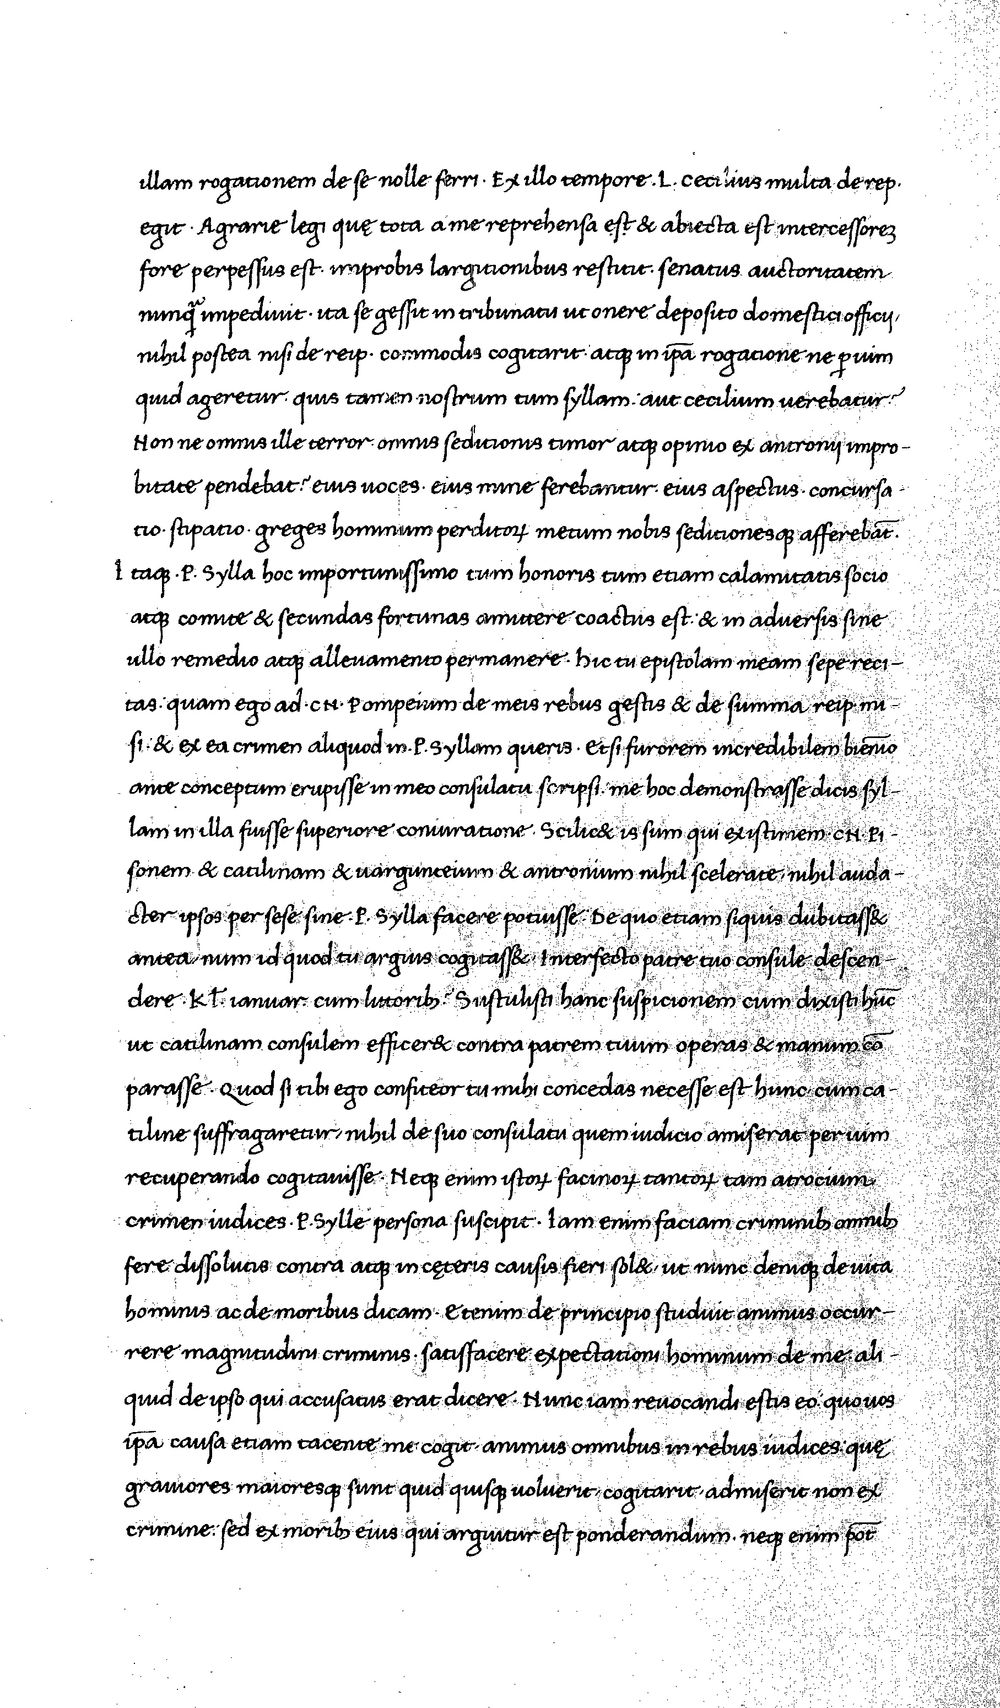 illam rogationem de se nolle ferri· Ex illo tempore .L. Cecilius multa de rep·
egit · Agrarie legi quę tota a me reprehensa est & abiecta est intercessoreȝ
fore perpessus est· improbis largitionibus restitit· senatus auctoritatem
nunq̃ impedivit· ita se gessit in tribunatu ut onere deposito domestici officij,
nihil postea nisi de reip· commodis cogitarit· atqȝ in ip̄a rogatione ne ꝑ uim
quid ageretur· quis tamen nostrum tum syllam· aut cecilium uerebatur?
Non ne omnis ille terror omnis seditionis timor atqȝ opinio ex antronij impro-
bitate pendebat? eius uoces· eius mine ferebantur· eius aspectus· concursa-
tio· stipatio· greges hominum perditoꝝ metum nobis seditionesqȝ afferebat̄.
I taqȝ ·P. Sylla hoc importunissimo tum honoris tum etiam calamitatis socio
atqȝ comite & secundas fortunas amittere coactus est & in adversis sine
ullo remedio atqȝ alleuamento permanere· hic tu epistolam meam sepe reci-
tas: quam ego ad ·CN· Pompeium de meis rebus gestis & de summa reip mi-
si: & ex ea crimen aliquod in .P. Syllam queris · Et si furorem incredibilem bien̄io
ante conceptum erupisse in meo consulatu scripsi· me hoc demonstrasse dicis syl-
lam in illa fuisse superiore coniuratione · Scilic& is sum qui existimem ·CN· Pi-
sonem & catilinam & uargunteium & antronium nihil scelerate, nihil auda-
cter ipsos per sese sine ·P. Sylla facere potuisse· De quo etiam siquis dubitass&
antea, num id quod tu arguis cogitass& · Interfecto patre tuo consule descen-
dere ·Kl̄. ianuar· cum lictoribȝ· Sustulisti hanc suspicionem cum dixisti hūc
ut catilinam consulem efficer& contra patrem tuum operas & manum cō
parasse · Quod si tibi ego confiteor tu mihi concedas necesse est hunc cum ca-
tiline suffragaretur, nihil de suo consulatu quem iudicio amiserat per uim
recuperando cogitavisse· Neqȝ enim istoꝝ facinoꝝ tantoꝝ tam atrocium,
crimen iudices ·P. Sylle persona suscipit · Iam enim faciam criminibȝ omnibȝ
fere dissolutis contra atqȝ in cęteris causis fieri sol&, ut nunc deniqȝ de uita
hominis ac de moribus dicam· Etenim de principio studuit animus occur-
rere magnitudini criminis· satisfacere expectationi hominum de me ali-
quid de ipso qui accusatus erat dicere· Nunc iam revocandi estis eo· quo uos
ip̄a causa etiam tacente me cogit· animus omnibus in rebus iudices quę
graviores maioresqȝ sunt quid quisqȝ voluerit· cogitarit, admiserit non ex
crimine: sed ex moribȝ eius qui arguitur est ponderandum· neqȝ enim p̄ot̄